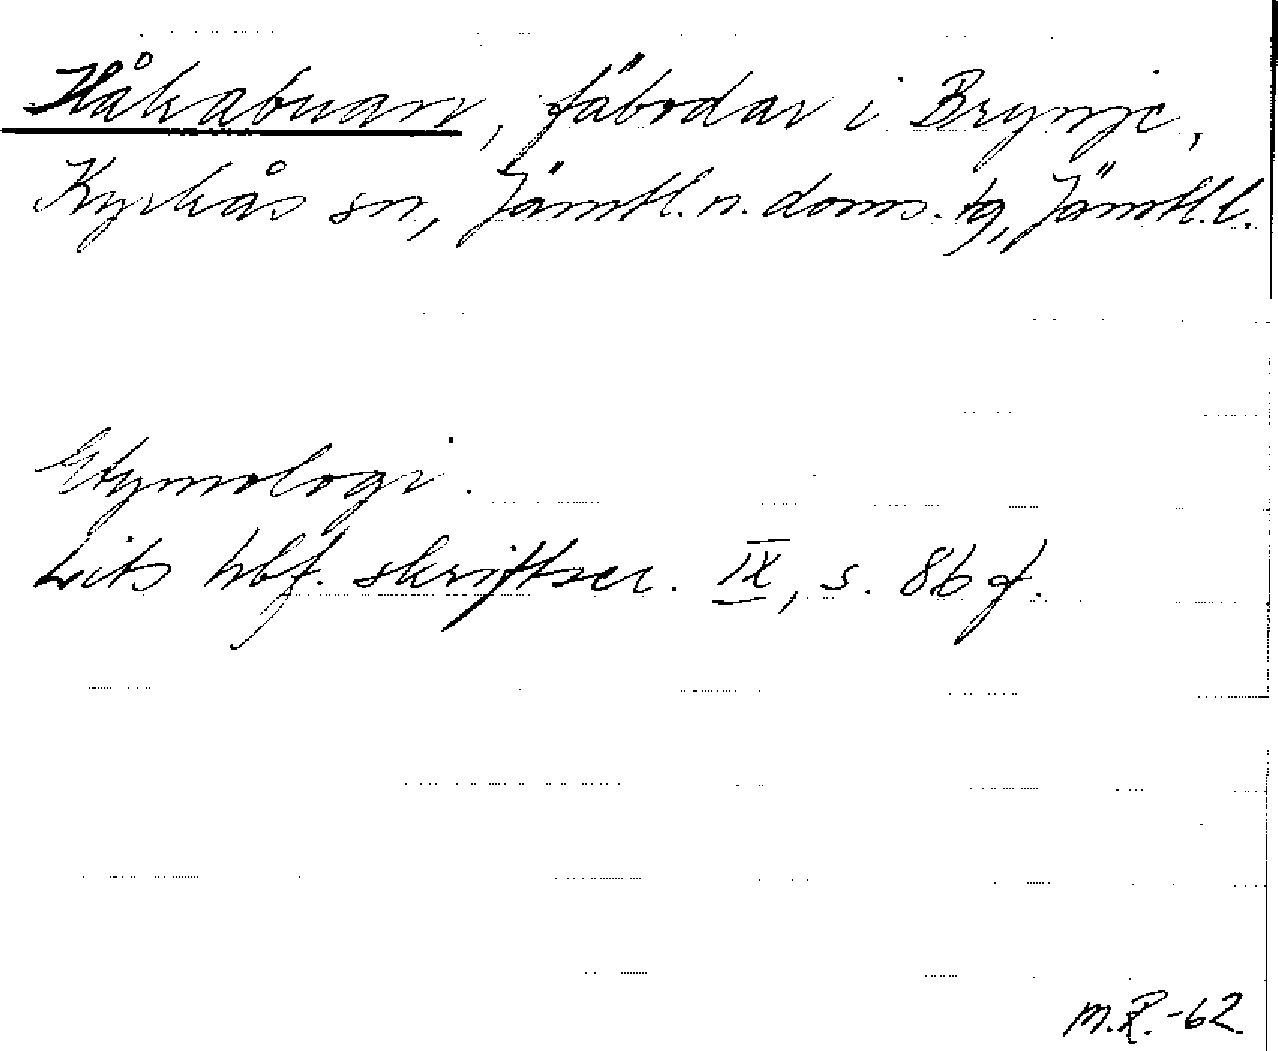 Håkabuan, fäbodar i Brynje,
Kyrkås sn, Jämtl. n. doms. tg, Jämtl. l.
Etymologi.
Lits hbf. skriftser. IX, s. 86 f.
M.R.-62.